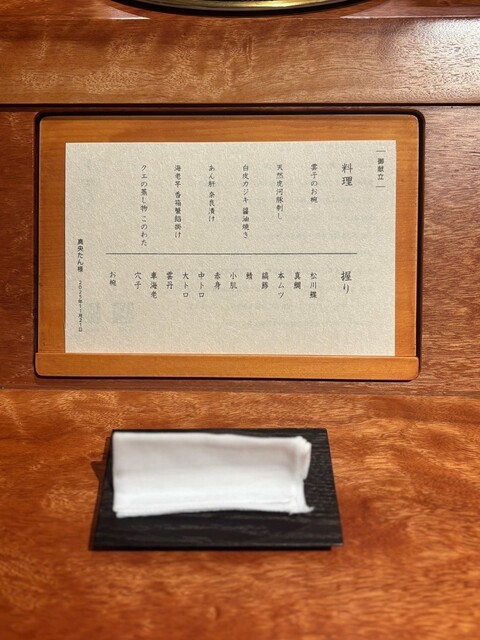 御献立
料理
雲子のお椀
天然虎河豚刺し
白皮カジキ 醤油焼き
あん肝 奈良漬け
海老芋 香箱蟹餡掛け
クエの蒸し物 このわた
握り
松川鰈
真鯛
本ムツ
縞鯵
鯖
小肌
赤身
中トロ
大トロ
雲丹
車海老
穴子
お椀
真央たん様
2023年11月21日